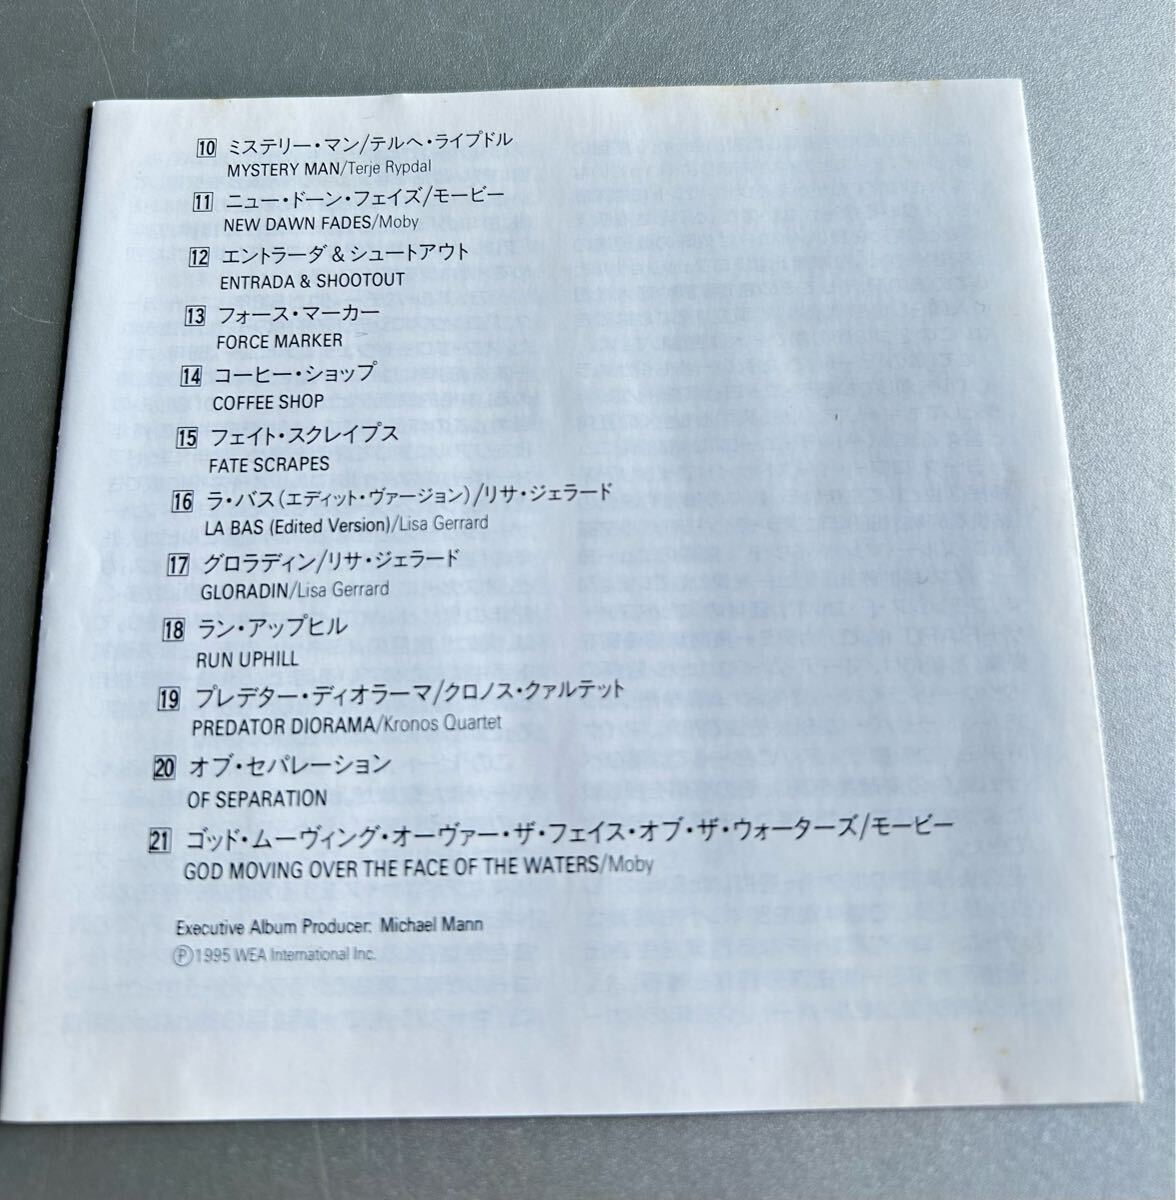 10 ミステリー・マン/テルヘ・ライプドル
MYSTERY MAN/Terje Rypdal
11 ニュー・ドーン・フェイズ/モービー
NEW DAWN FADES/Moby
12 エントラーダ & シュートアウト
ENTRADA & SHOOTOUT
13 フォース・マーカー
FORCE MARKER
14 コーヒー・ショップ
COFFEE SHOP
15 フェイト・スクレイプス
FATE SCRAPES
16 ラ・バス(エディット・ヴァージョン)/リサ・ジェラード
LA BAS (Edited Version)/Lisa Gerrard
17 グロラディン/リサ・ジェラード
GLORADIN/Lisa Gerrard
18 ラン・アップヒル
RUN UPHILL
19 プレデター・ディオラーマ/クロノス・クァルテット
PREDATOR DIORAMA/Kronos Quartet
20 オブ・セパレーション
OF SEPARATION
21 ゴッド・ムーヴィング・オーヴァー・ザ・フェイス・オブ・ザ・ウォーターズ/モービー
GOD MOVING OVER THE FACE OF THE WATERS/Moby
Executive Album Producer: Michael Mann
Ⓟ1995 WEA International Inc.